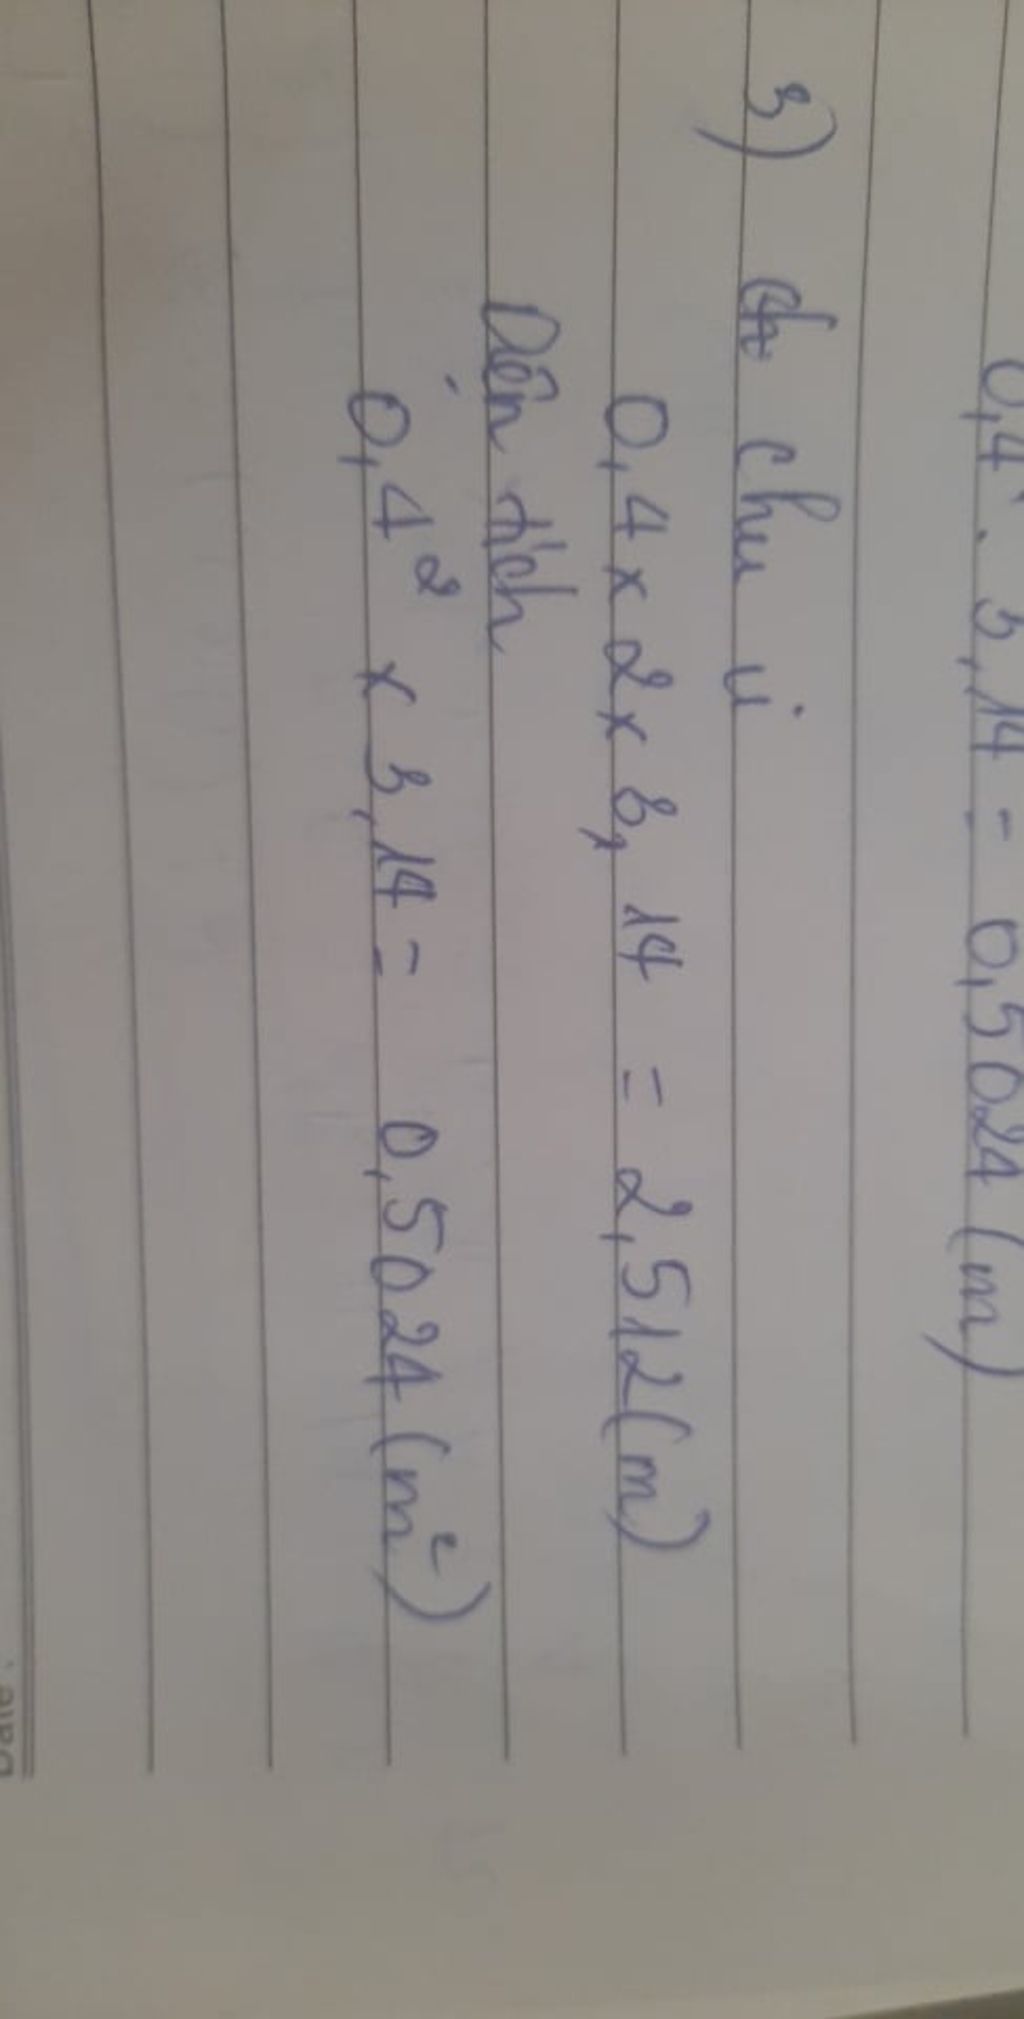 0,4² . 3,14 = 0,5024 (m)
3) chu vi
0,4 x 2 x 3,14 = 2,512 (m)
Diện tích
0,4² x 3,14 = 0,5024 (m²)
Date :